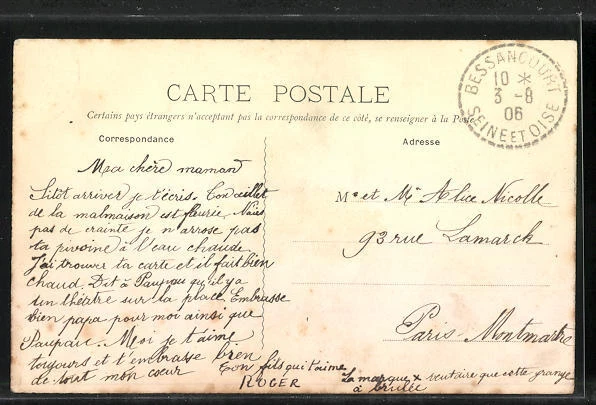 CARTE POSTALE
Certains pays étrangers n'acceptant pas la correspondance de ce côté, se renseigner à la Poste
Correspondance
Adresse
BESSANCOURT
10 *
3 - 8
06
SEINE ET OISE
Ma chère maman
Sitot arriver je t'écris. Ton œillet
de la malmaison est fleurie. N'aies
pas de crainte je n'arrose pas
ta pivoine à l'eau chaude
J'ai trouver ta carte et il fait bien
chaud. Dit à Paupau qu'il y a
un théâtre sur la place Embrasse
bien papa pour moi ainsi que
Paupau. Moi je t'aime
toujours et t'embrasse bien
de tout mon coeur
Ton fils qui t'aime
ROGER
Mr et Me Nicolle
93 rue Lamarck
Paris-Montmartre
La marque x que cette grange
à brulée